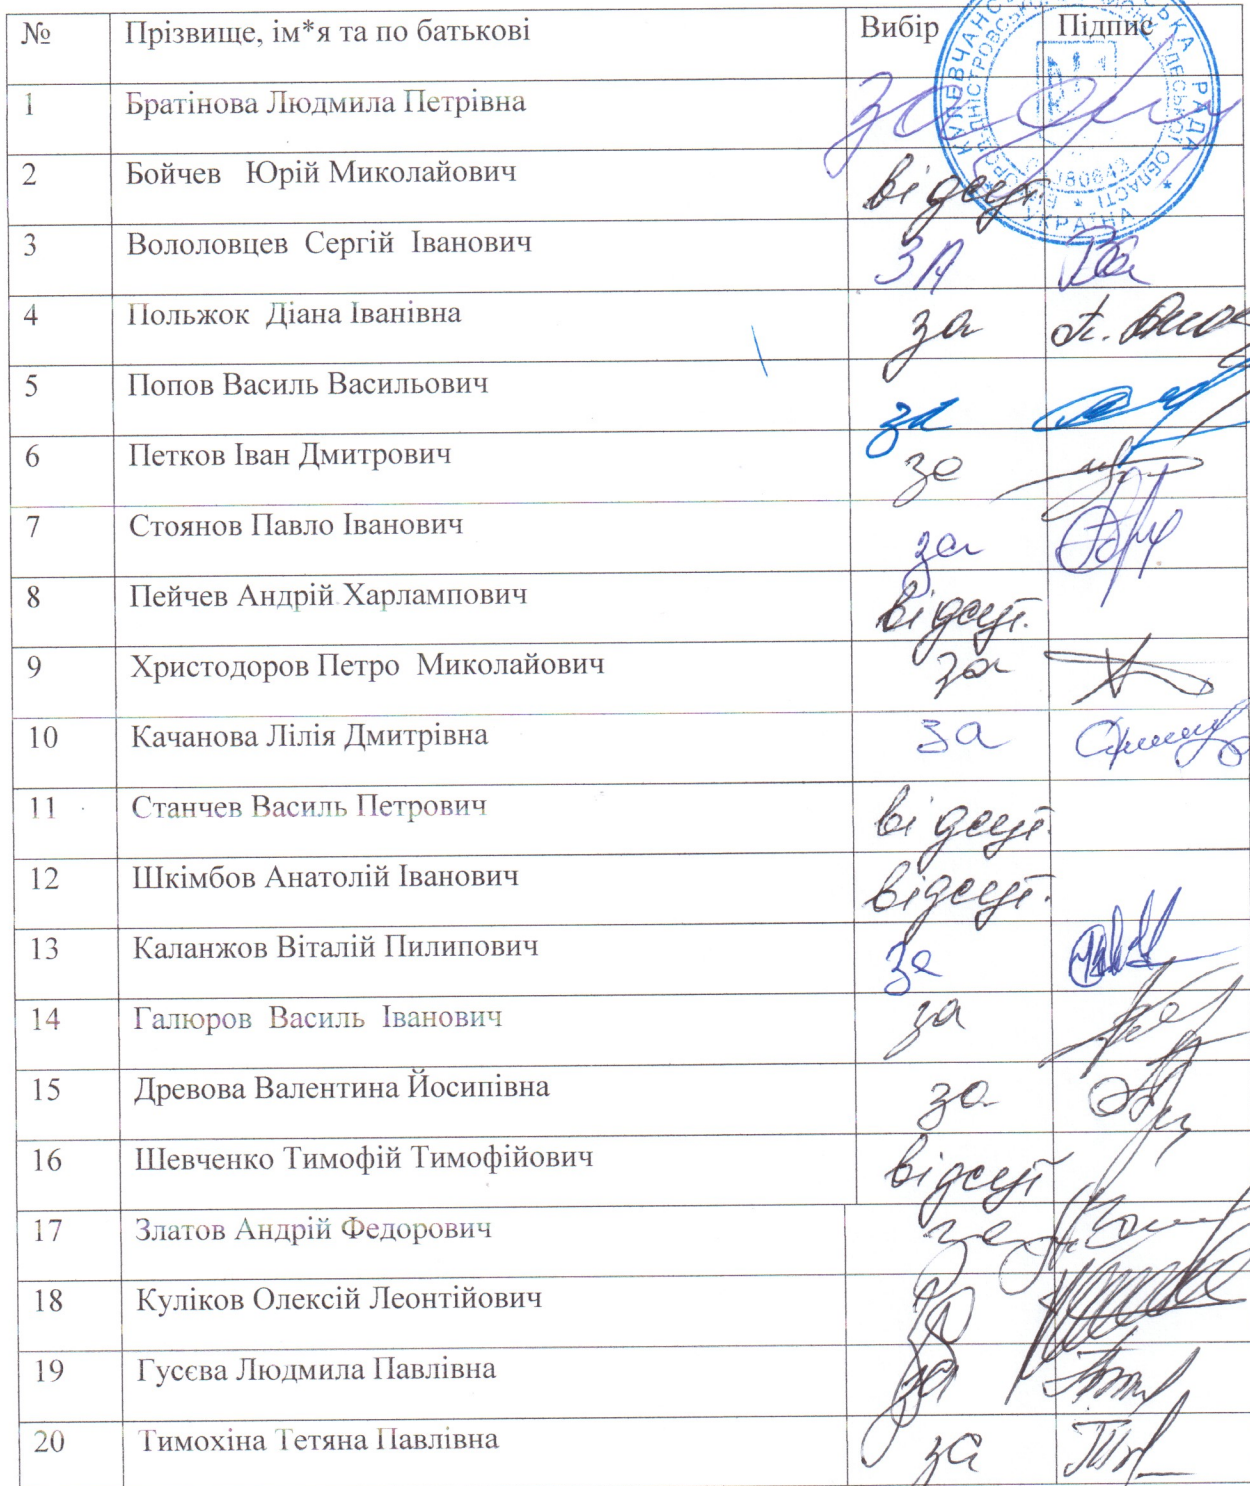 № Прізвище, ім*я та по батькові Вибір Підпис
1 Братінова Людмила Петрівна за
2 Бойчев Юрій Миколайович відсут.
3 Вололовцев Сергій Іванович ЗА
4 Польжок Діана Іванівна за
5 Попов Василь Васильович за
6 Петков Іван Дмитрович за
7 Стоянов Павло Іванович за
8 Пейчев Андрій Харлампович відсут.
9 Христодоров Петро Миколайович за
10 Качанова Лілія Дмитрівна за
11 Станчев Василь Петрович відсут.
12 Шкімбов Анатолій Іванович відсут.
13 Каланжов Віталій Пилипович за
14 Галюров Василь Іванович за
15 Древова Валентина Йосипівна за
16 Шевченко Тимофій Тимофійович відсут
17 Златов Андрій Федорович за
18 Куліков Олексій Леонтійович
19 Гусєва Людмила Павлівна за
20 Тимохіна Тетяна Павлівна за
РАДА
ОБЛАСТІ
УКРАЇНА